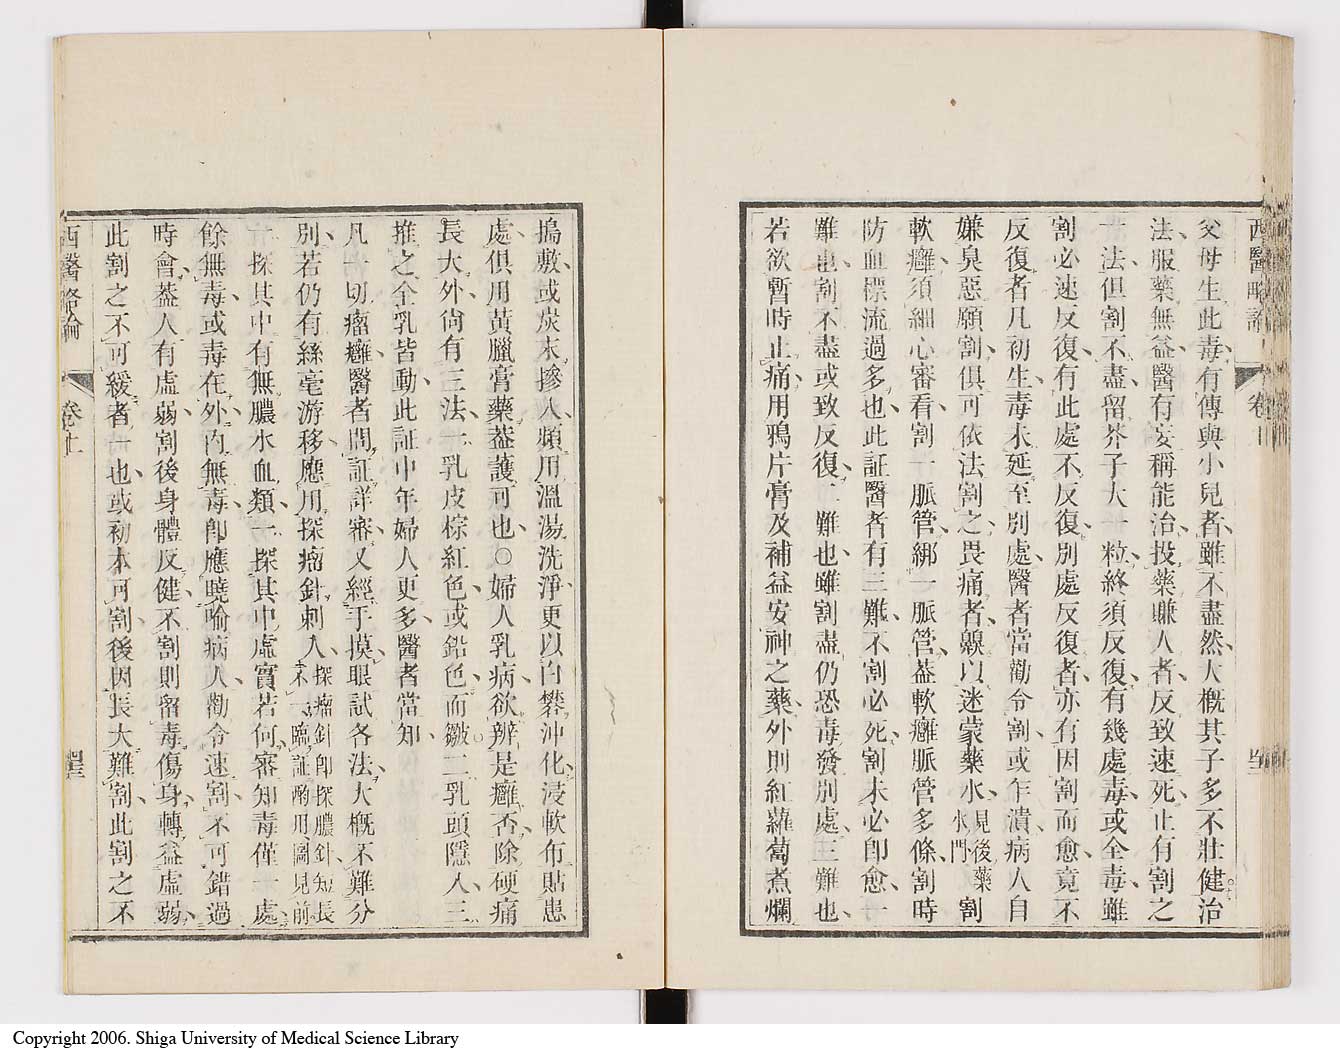 父母生此毒有傳與小兒者雖不盡然大概其子多不壯健治
法服藥無益醫有妄稱能治投藥賺人者反致速死止有割之
一法但割不盡留芥子大一粒終須反復有幾處毒或全毒雖
割必速反復有此處不反復別處反復者亦有因割而愈竟不
反復者凡初生毒未延至別處醫者當勸令割或乍潰病人自
嫌臭惡願割俱可依法割之畏痛者齅以迷蒙藥水見後藥水門割
軟癰須細心審看割一脈管綁一脈管蓋軟癰脈管多條割時
防血標流過多也此証醫者有三難不割必死割未必卽愈一
難也割不盡或致反復二難也雖割盡仍恐毒發別處三難也
若欲暫時止痛用鴉片膏及補益安神之藥外則紅蘿蔔煮爛
西醫略論
卷
搗敷或炭末摻入頻用溫湯洗淨更以白礬沖化浸軟布貼患
處俱用黃臘膏藥葢護可也○婦人乳病欲辨是癰否除硬痛
長大外尙有三法一乳皮棕紅色或鉛色而皺二乳頭隱入三
推之全乳皆動此証中年婦人更多醫者當知
凡一切瘤癰醫者問証詳審又經手摸眼試各法大概不難分
別若仍有絲毫游移應用探瘤針刺入探瘤針卽探膿針短長不一臨証酌用圖見前
一探其中有無膿水血類一探其中虛實若何審知毒僅一處
餘無毒或毒在外內無毒卽應曉喻病人勸令速割不可錯過
時會葢人有虛弱割後身體反健不割則留毒傷身轉益虛弱
此割之不可緩者一也或初本可割後因長大難割此割之不
西醫略論
卷